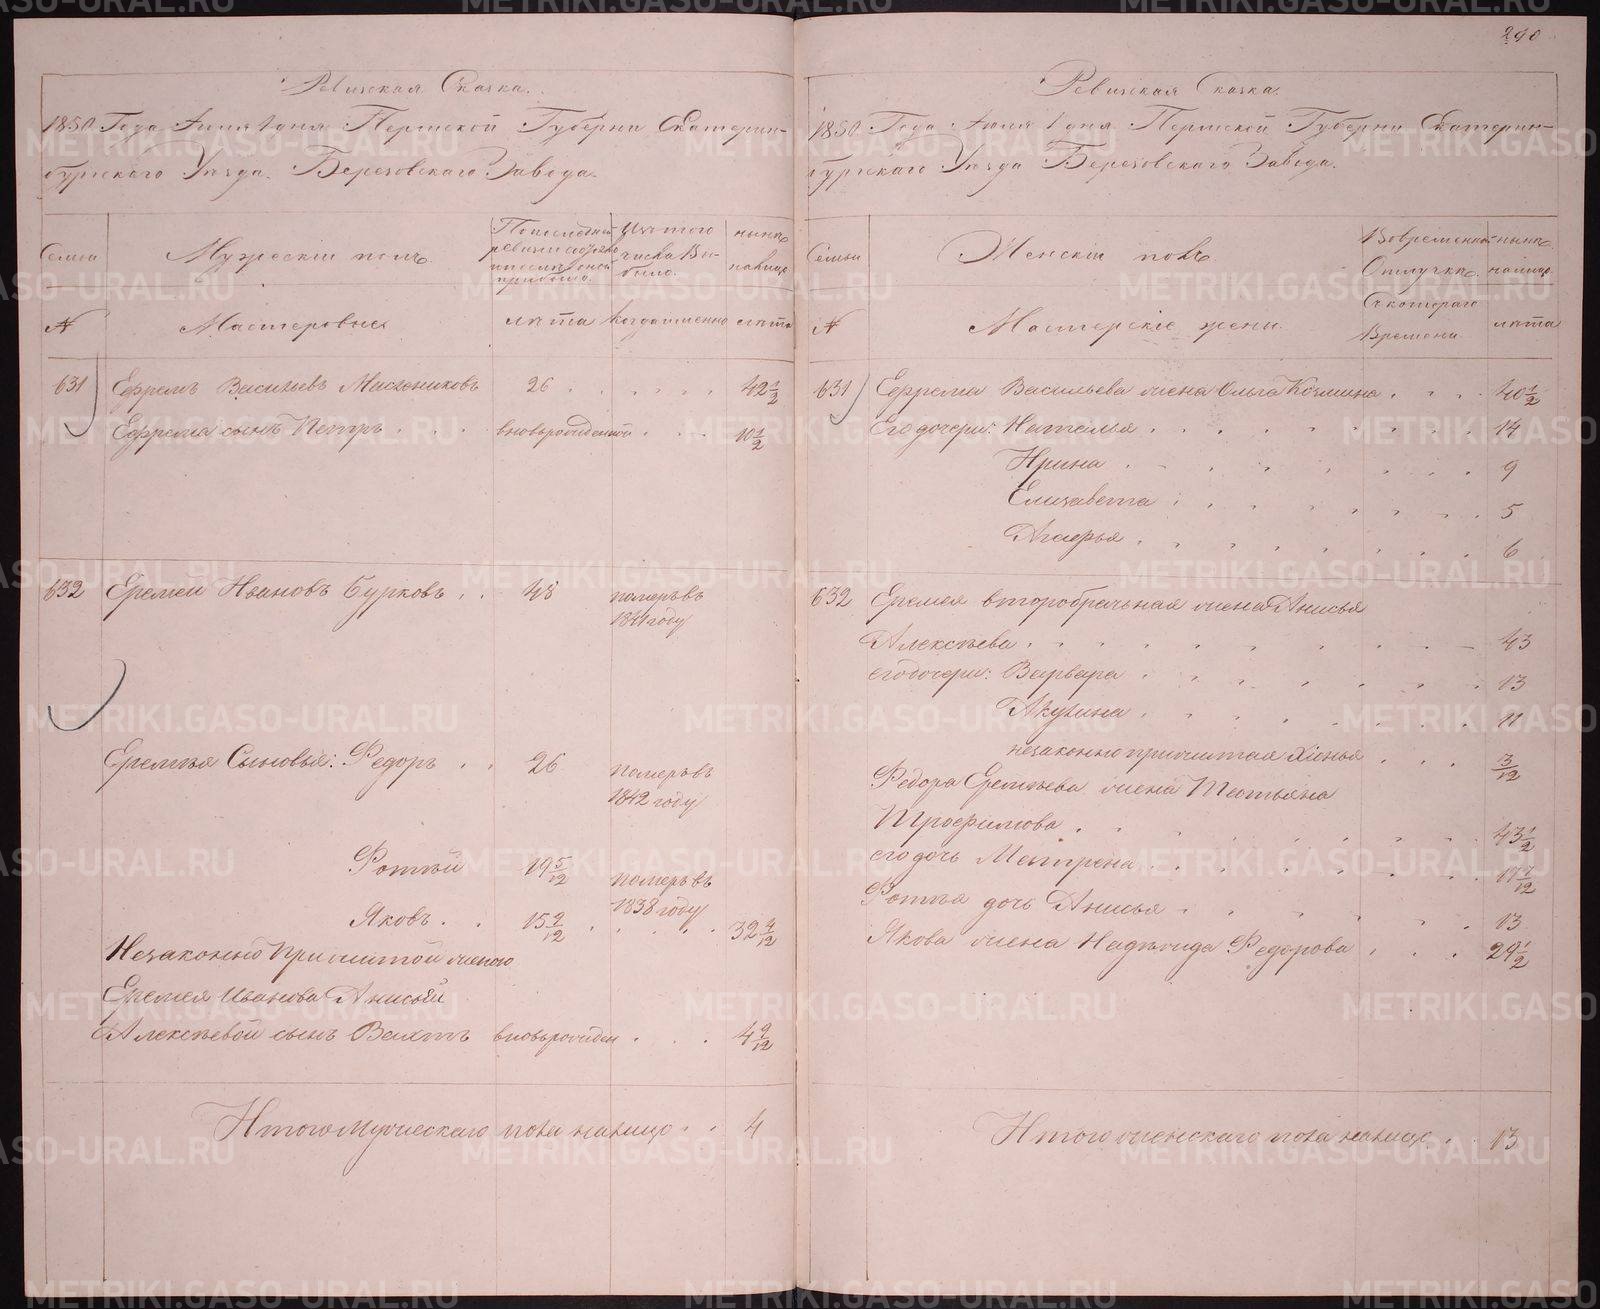 Ревизская Сказка.
1850 Года Июля 1 дня Пермской Губерни Екатерин-
бургскаго Уезда. Березовскаго Завода.
Семьи
Мужескiй полъ.
По последней ревизии состояло и после оной прибыло.
Изъ того числа Вы-было.
ныне на лицо
№
Мастеровые
лета
Когда именно
лета
631 Ефремъ Васильевъ Масленниковъ 26 42 1/2
Ефрема сынъ Петръ вновьрожденной 10 1/2
632 Еремей Ивановъ Бурковъ 48 померъ въ
1841 году
Еремея Сыновья: Федоръ 26 померъ въ
1842 году
Фотей 19 5/12 померъ въ
1838 году
Яковъ 15 9/12 32 4/12
Незаконно Прижитой женою
Еремея Иванова Анисьей
Алексеевой сынъ вновьрожден 4 9/12
Итого мужескаго пола налицо 4
290
Ревизская Сказка.
1850 Года Июля 1 дня Пермской Губерни Екатерин-
бургскаго Уезда Березовскаго Завода.
Семьи
Женскiй полъ
Во временной Отлучке.
ныне налицо.
№
Мастерскiе жены.
Съ котораго Времени
лета
631 Ефрема Васильева жена Ольга Козмина 40 1/2
Его дочери: Наталья 14
Ирина 9
Елизавета 5
6
632 Еремея второбрачная жена Анисья
Алексеева 43
его дочери: Варвара 13
Акулина 11
незаконно прижитая Хiонья 3/12
Федора Еремеева жена Татьяна
Трофимова 43 1/2
его дочь Матрена
Фотея дочь Анисья 13
Якова жена Надежида Федорова 29 1/2
Итого женскаго пола налицо 13
METRIKI.GASO-URAL.RU